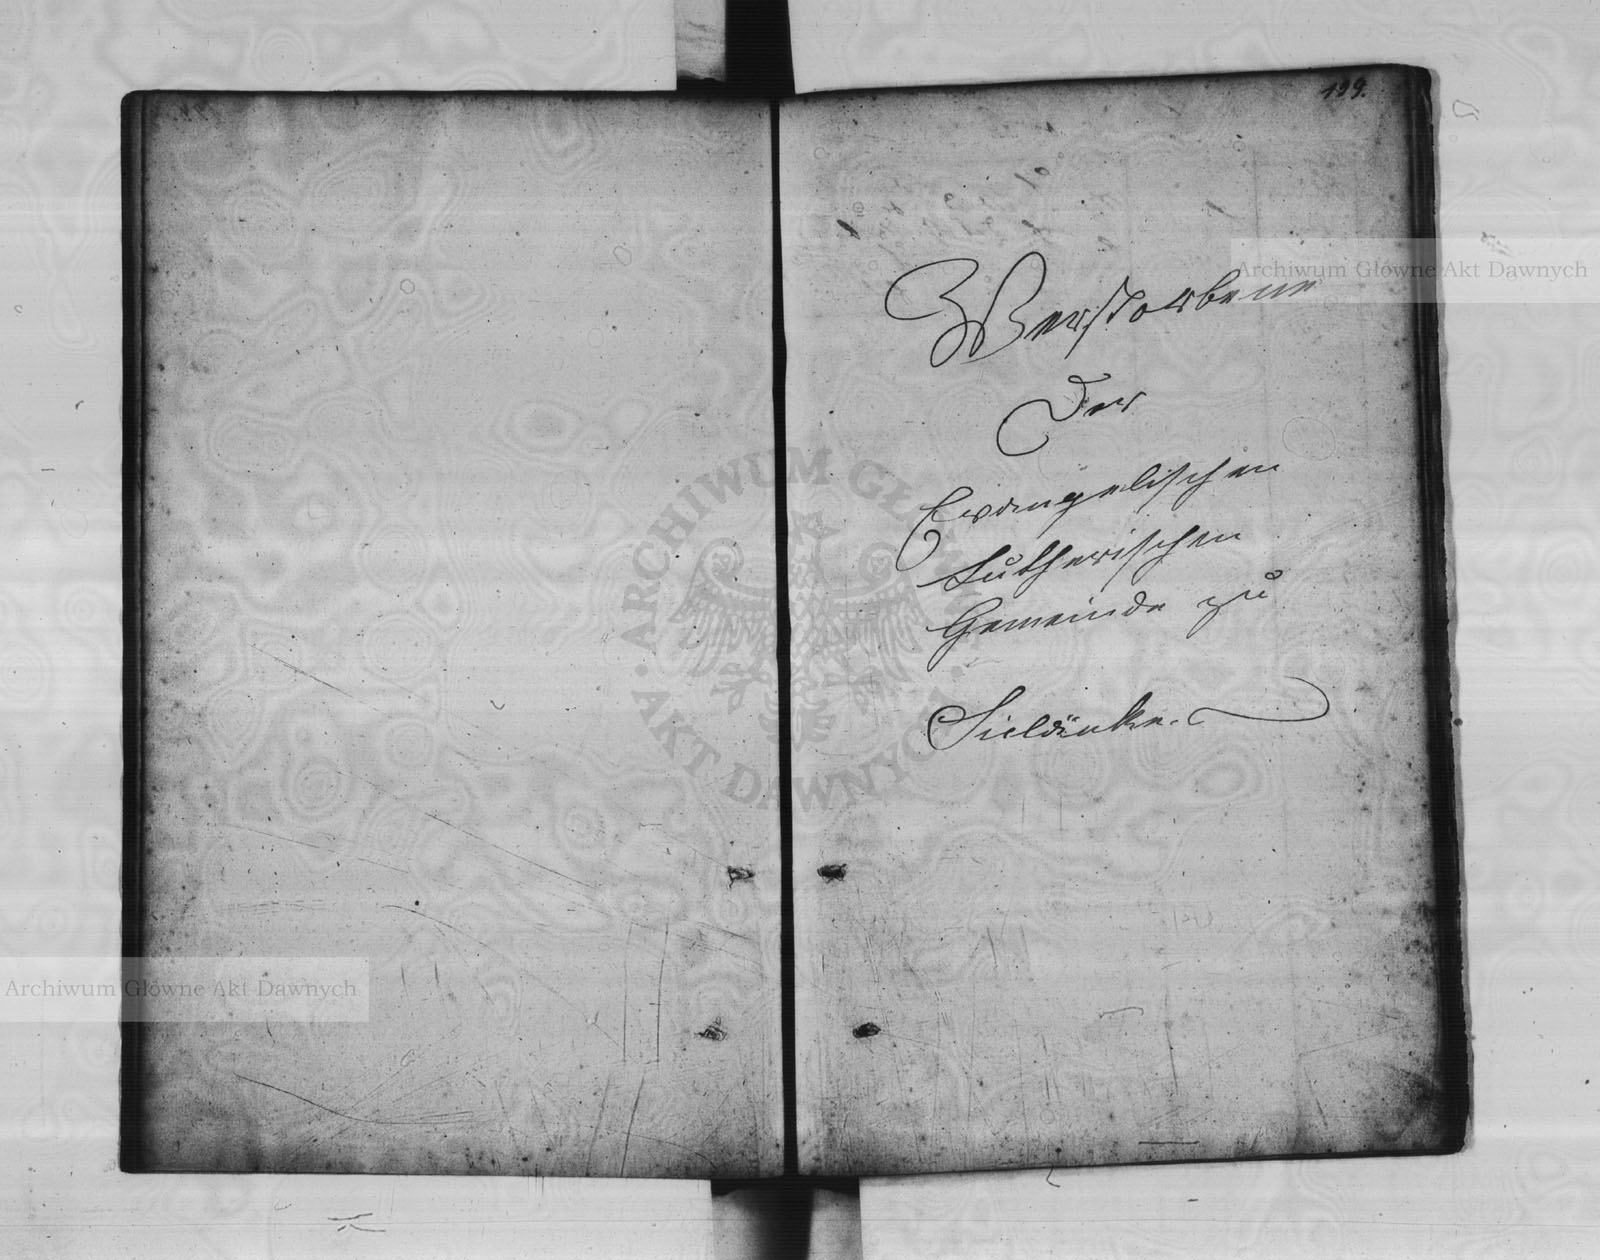 199.
Archiwum Główne Akt Dawnych
Verstorbene
Der
Evangelischen
Lutherischen
Gemeinde zu
ARCHIWUM GŁÓWNE
AKT DAWNYCH
Archiwum Główne Akt Dawnych